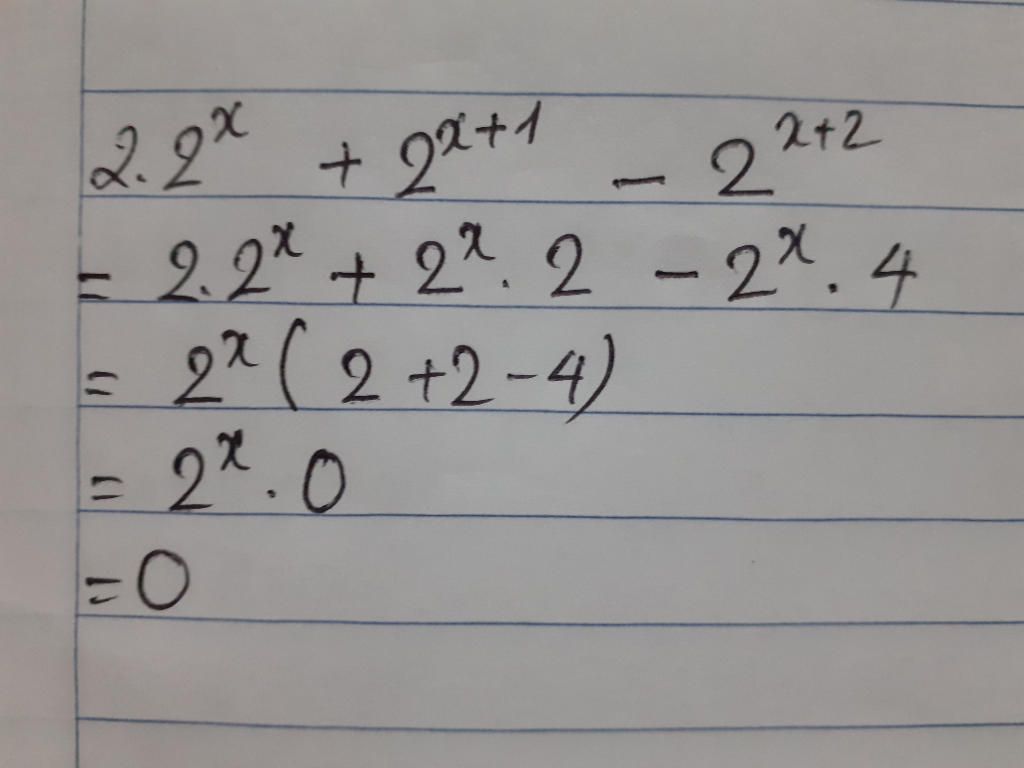 2.2^x + 2^{x+1} - 2^{x+2}
= 2.2^x + 2^x . 2 - 2^x . 4
= 2^x ( 2 + 2 - 4)
= 2^x . 0
= 0